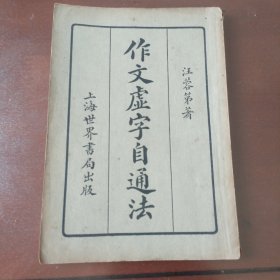 汪蓉第著
作文虚字自通法
上海世界書局出版